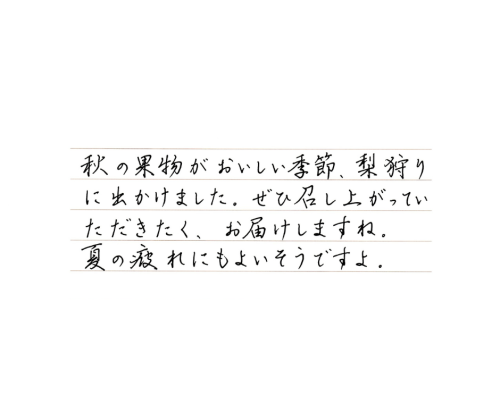 秋の果物がおいしい季節、梨狩り
に出かけました。ぜひ召し上がってい
ただきたく、お届けしますね。
夏の疲れにもよいそうですよ。